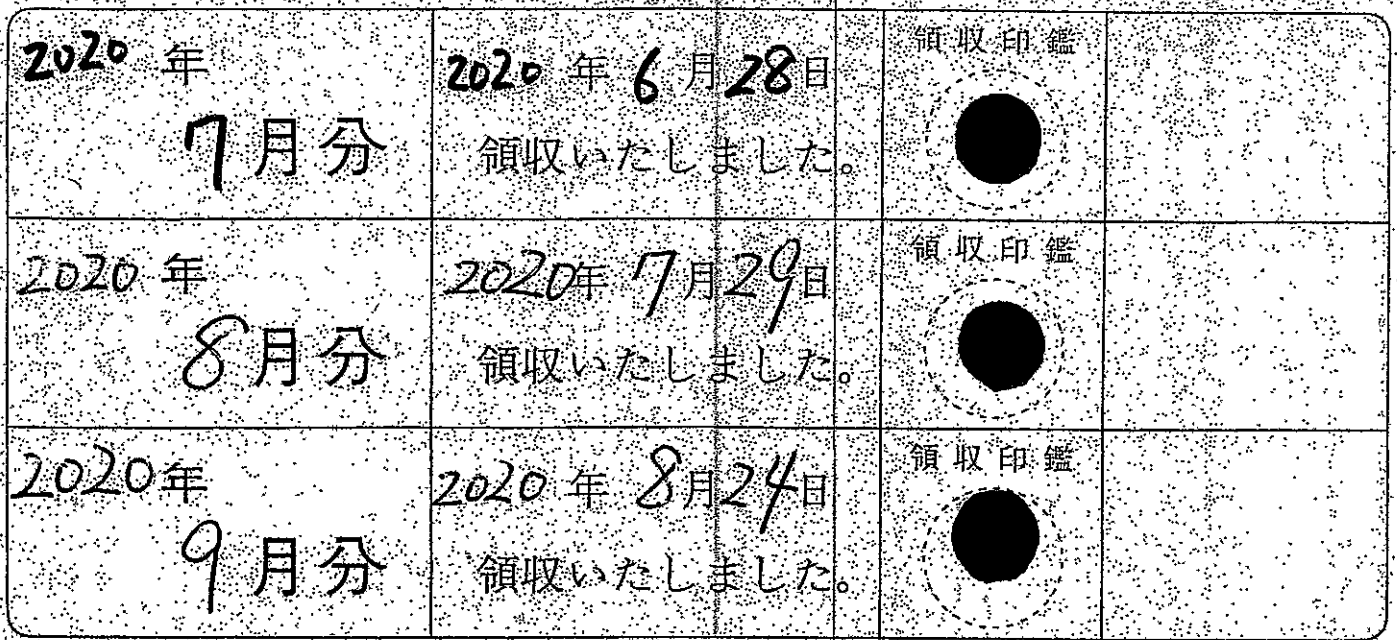 2020年
7月分
2020年6月28日
領収いたしました。
領収印鑑
2020年
8月分
2020年7月29日
領収いたしました。
領収印鑑
2020年
9月分
2020年8月24日
領収いたしました。
領収印鑑